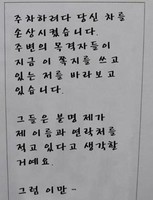 주차하려다 당신 차를
손상시켰습니다.
주변의 목격자들이
지금 이 쪽지를 쓰고
있는 저를 바라보고
있습니다.
그들은 분명 제가
제 이름과 연락처를
적고 있다고 생각할
거예요.
그럼 이만-